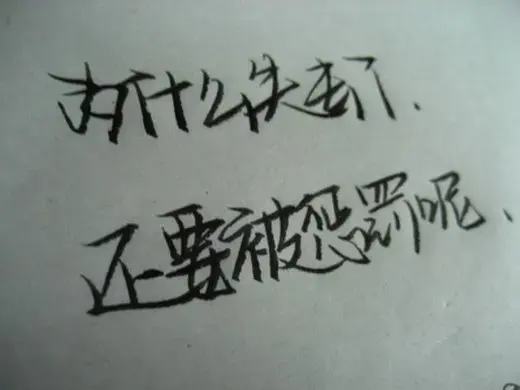 为什么失去了.
还要被惩罚呢.